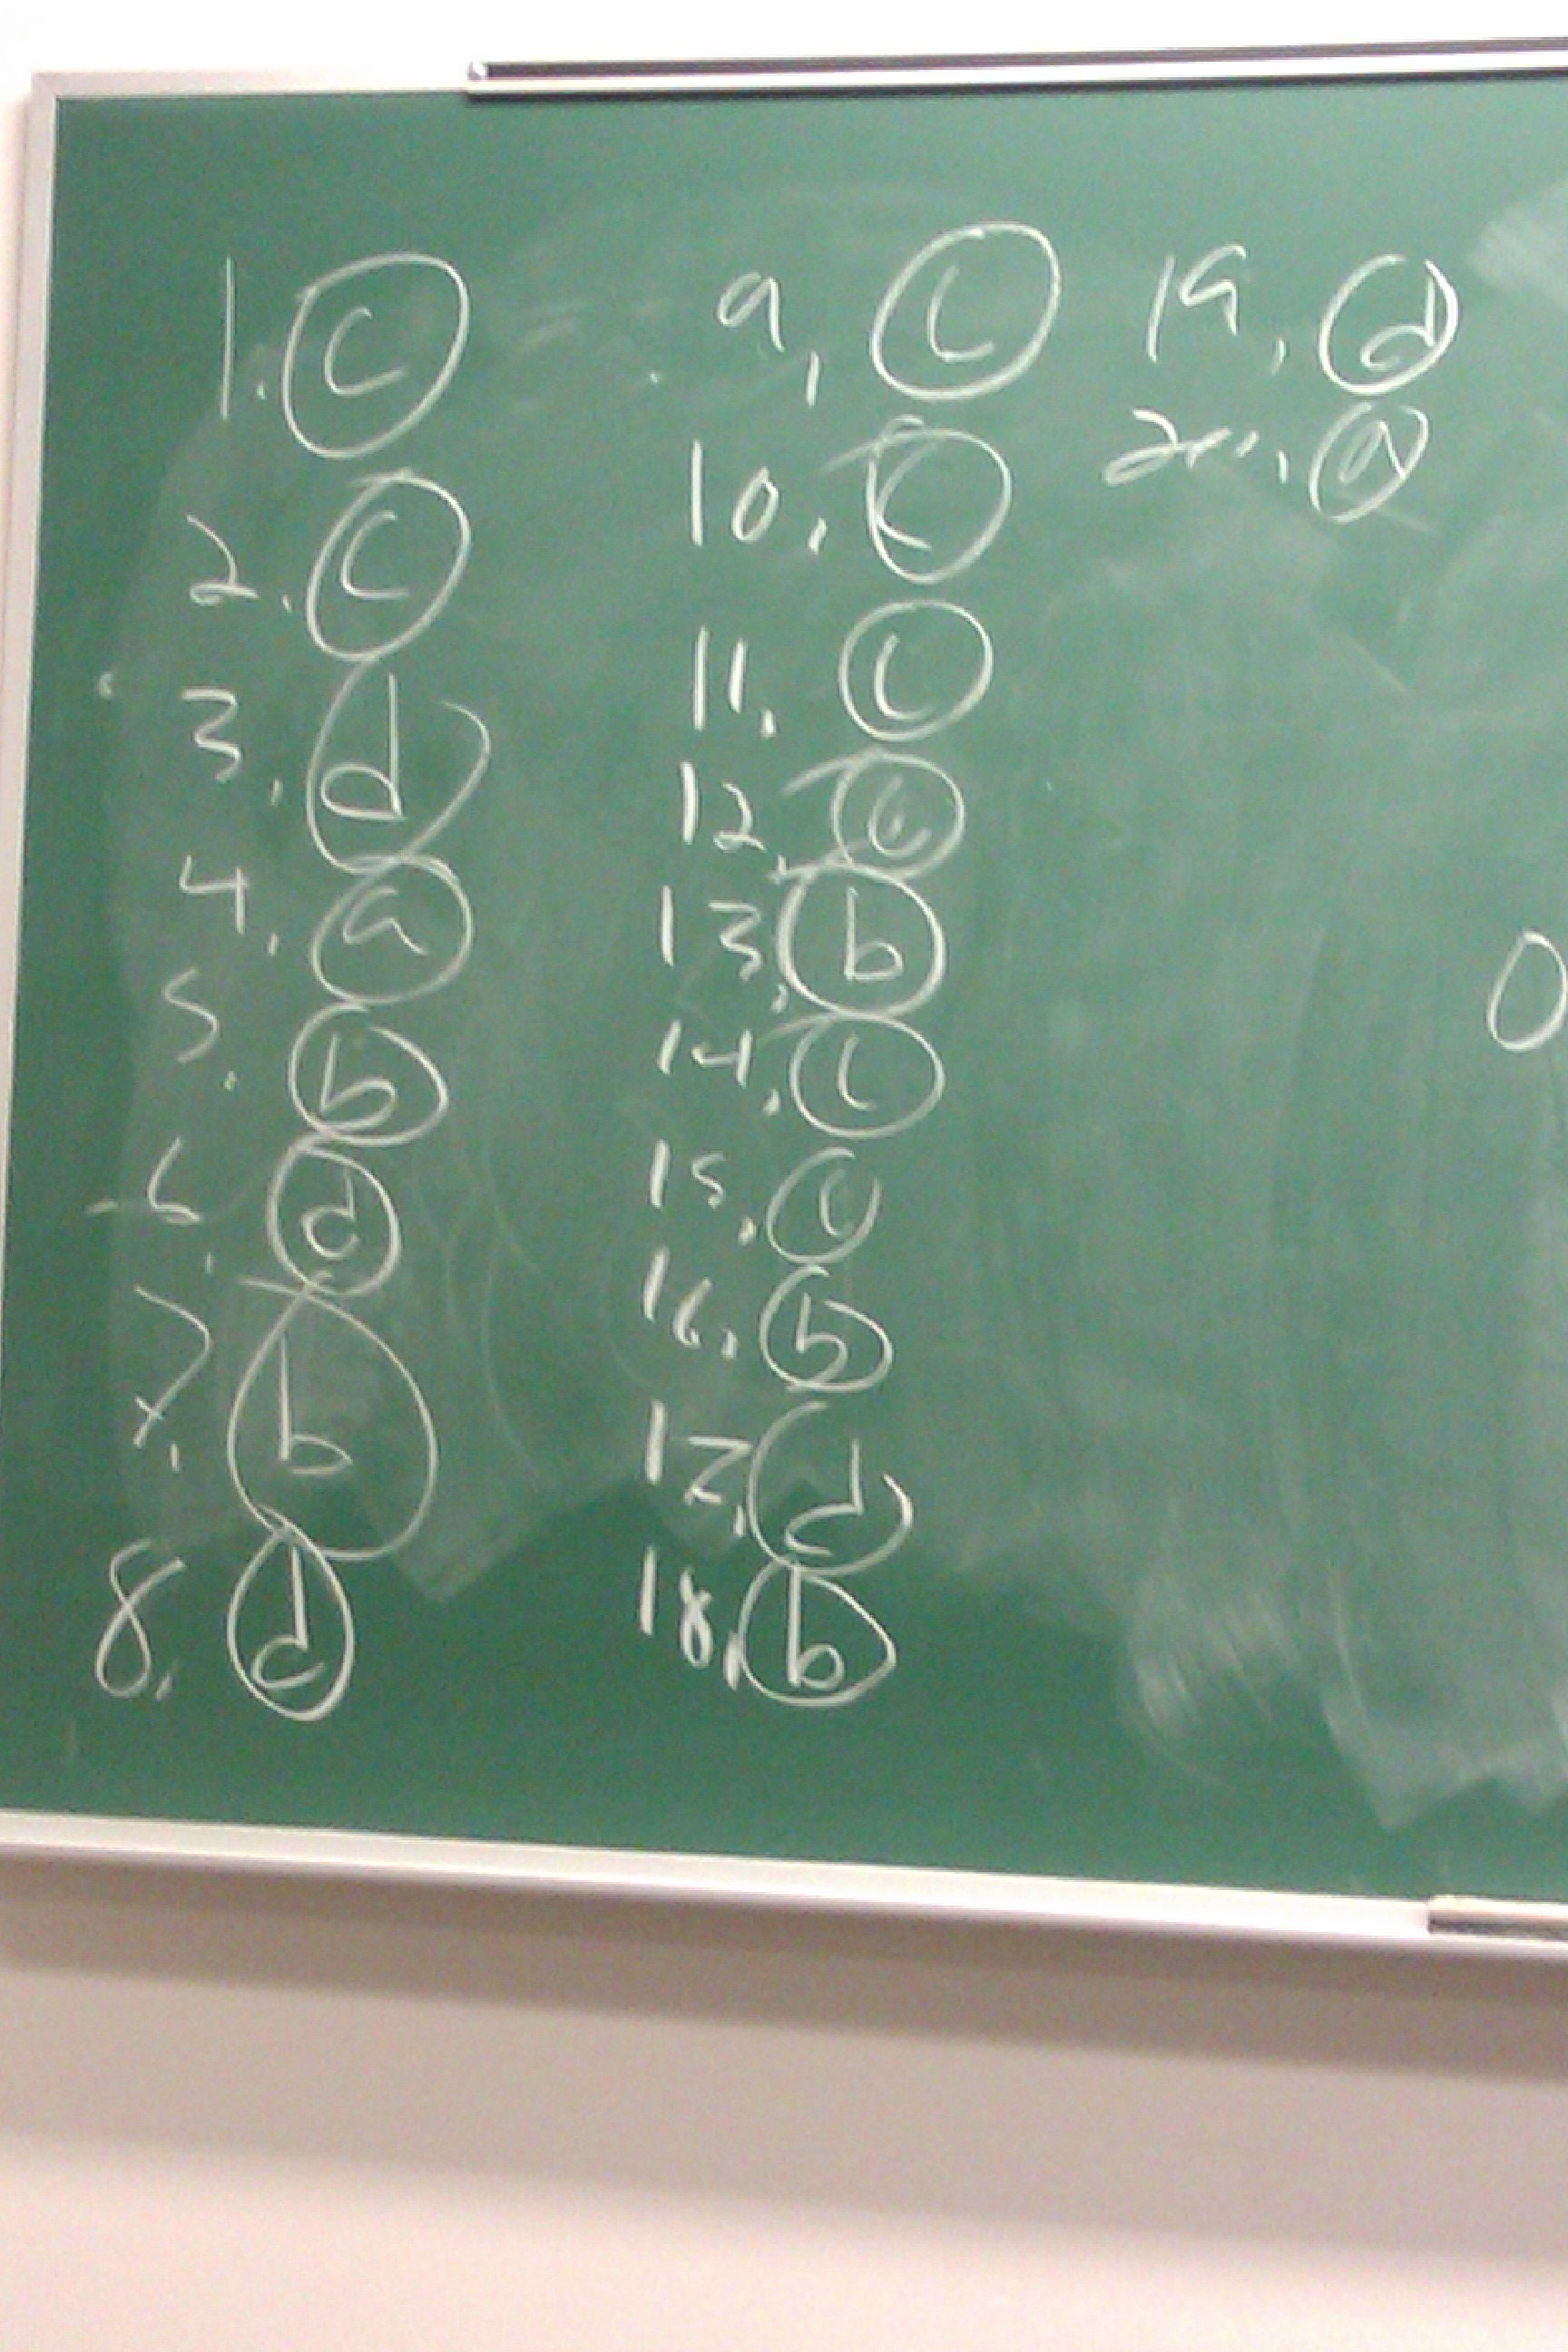 1. c
2. c
3. d
4. a
5. b
6. d
7. b
8. d
9. c
10. c
11. c
12. c
13. b
14. c
15. c
16. b
17. d
18. b
19. d
20. a
0